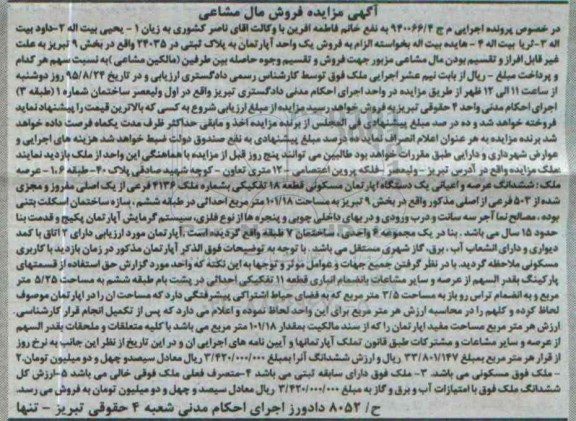 آگهی مزایده فروش مال مشاعی
در خصوص پرونده اجرایی م ج ۹۴۰۰۶۶/۴ به نفع خانم فاطمه افرین با وکالت اقای ناصر کشوری به زیان ۱ - یحیی بیت اله ۲- داود بیت
اله ۳- ثریا بیت اله ۴ - هایده بیت اله بخواسته الزام به فروش یک واحد آپارتمان به پلاک ثبتی در ۲۴۰۳۵ واقع در بخش ۹ تبریز به علت
غیر قابل افراز و تقسیم بودن مال مشاعی مزبور جهت فروش و تقسیم وجوه حاصله بین طرفین (مالکین مشاعی) به نسبت سهم هر کدام
و پرداخت مبلغ - ریال از بابت نیم عشر اجرایی ملک فوق توسط کارشناس رسمی دادگستری ارزیابی و در تاریخ ۹۵/۸/۲۴ روز دوشنبه
از ساعت ۱۱ الی ۱۲ ظهر از طریق مزایده در واحد اجرای احکام مدنی دادگستری تبریز واقع در اول ولیعصر ساختمان شماره ۱ (طبقه ۳)
اجرای احکام مدنی واحد ۴ حقوقی تبریز به فروش خواهد رسید مزایده از مبلغ ارزیابی شروع به کسی که بالاترین قیمت را پیشنهاد نماید
فروخته خواهد شد و ده در صد مبلغ پیشنهادی فی المجلس از برنده مزایده اخذ و مابقی حداکثر ظرف مدت یکماه فرصت داده خواهد
شد برنده مزایده به هر عنوان اعلام انصراف نماید ده درصد مبلغ پیشنهادی به نفع صندوق دولت ضبط خواهد شد هزینه های اجرایی و
عوارض شهرداری و دارایی طبق مقررات خواهد بود طالبین می توانند پنج روز قبل از مزایده با هماهنگی این واحد از ملک بازدید نمایند
:ملک مزایده واقع در آدرس تبریز - ولیعصر - فلکه پروین اعتصامی - ۱۲ متری تعاون - کوچه شهید صادقی پلاک ۴۰- طبقه ۶ ۱- عرصه
ملک: ششدانگ عرصه و اعیانی یک دستگاه اپارتمان مسکونی قطعه ۱۸ تفکیکی بشماره ملک ۴۱۳۶ فرعی از یک اصلی مفروز و مجزی
شده از ۵۰۳ فرعی از اصلی مذکور واقع در بخش ۹ تبریز به مساحت ۱۰۱/۱۸ متر مربع احداثی در طبقه ششم، سازه ساختمان اسکلت بتنی
بوده ، مصالح نما آجر سه سانت و درب ورودی و دربهای داخلی چوبی و پنجره ها از نوع فلزی، سیستم گرمایش آپارتمان پکیج و قدمت بنا
حدود ۱۵ سال می باشد. بنا در یک مجموعه ۶ واحدی، در ساختمان ۷ طبقه واقع گردیده است. آپارتمان مورد ارزیابی دارای ۲ اتاق با کمد
دیواری و دارای انشعاب آب ، برق، گاز شهری مستقل می باشد . با توجه به توضیحات فوق الذکر آپارتمان مذکور در زمان بازدید با کاربری
مسکونی ملاحظه گردید. با در نظر گرفتن جمیع جهات و عوامل موثر و توجها به این نکته که واحد مورد گزارش حق استفاده از قسمتهای
پارکینگ بقدر السهم از عرصه و سایر مشاعات بانضمام انباری قطعه ۱۱ تفکیکی احداثی در پشت بام طبقه ششم به مساحت ۵/۲۵ متر
مربع و به انضمام تراس رو باز به مساحت ۳/۵ متر مربع که به فضای حیاط اشتراکی پیشرفتگی دارد که مساحت ان را در اپارتمان موصوف
لحاظ کرده و کلهم را در محاسبه ارزش هر متر مربع برای این واحد لحاظ نموده و اعلام می دارد که پس از تکمیل انجام قرار کارشناسی،
ارزش هر متر مربع مساحت مفید اپارتمان را که از سند مالکیت بمقدار ۱۰۱/۱۸ متر مربع می باشد با کلیه متعلقات و ملحقات بقدر السهم
از عرصه و سایر مشاعات و مشترکات طبق قانون تملک آپارتمانها و آیین نامه های اجرایی ان و در این تاریخ از نظر این جانب به نرخ روز
از قرار هر متر مربع بمبلغ ۳۳/۸۰۱/۱۴۷ ریال و ارزش ششدانگ آنرا بمبلغ ۳/۴۲۰/۰۰۰/۰۰۰ ریال معادل سیصدو چهل و دو میلیون تومان. ۲
- ملک فوق مسکونی می باشد. ۳- ملک فوق دارای سابقه ثبتی می باشد ۴- متصرف فعلی ملک فوقی خالی می باشد ۵- ارزش کل
ششدانگ ملک فوق با امتیازات آب و برق و گاز به مبلغ ۳/۴۲۰/۰۰۰/۰۰۰ ریال معادل سیصد و چهل و دو میلیون تومان به فروش می رسد.
ح/ ۸۰۵۲ دادورز اجرای احکام مدنی شعبه ۴ حقوقی تبریز - تنها